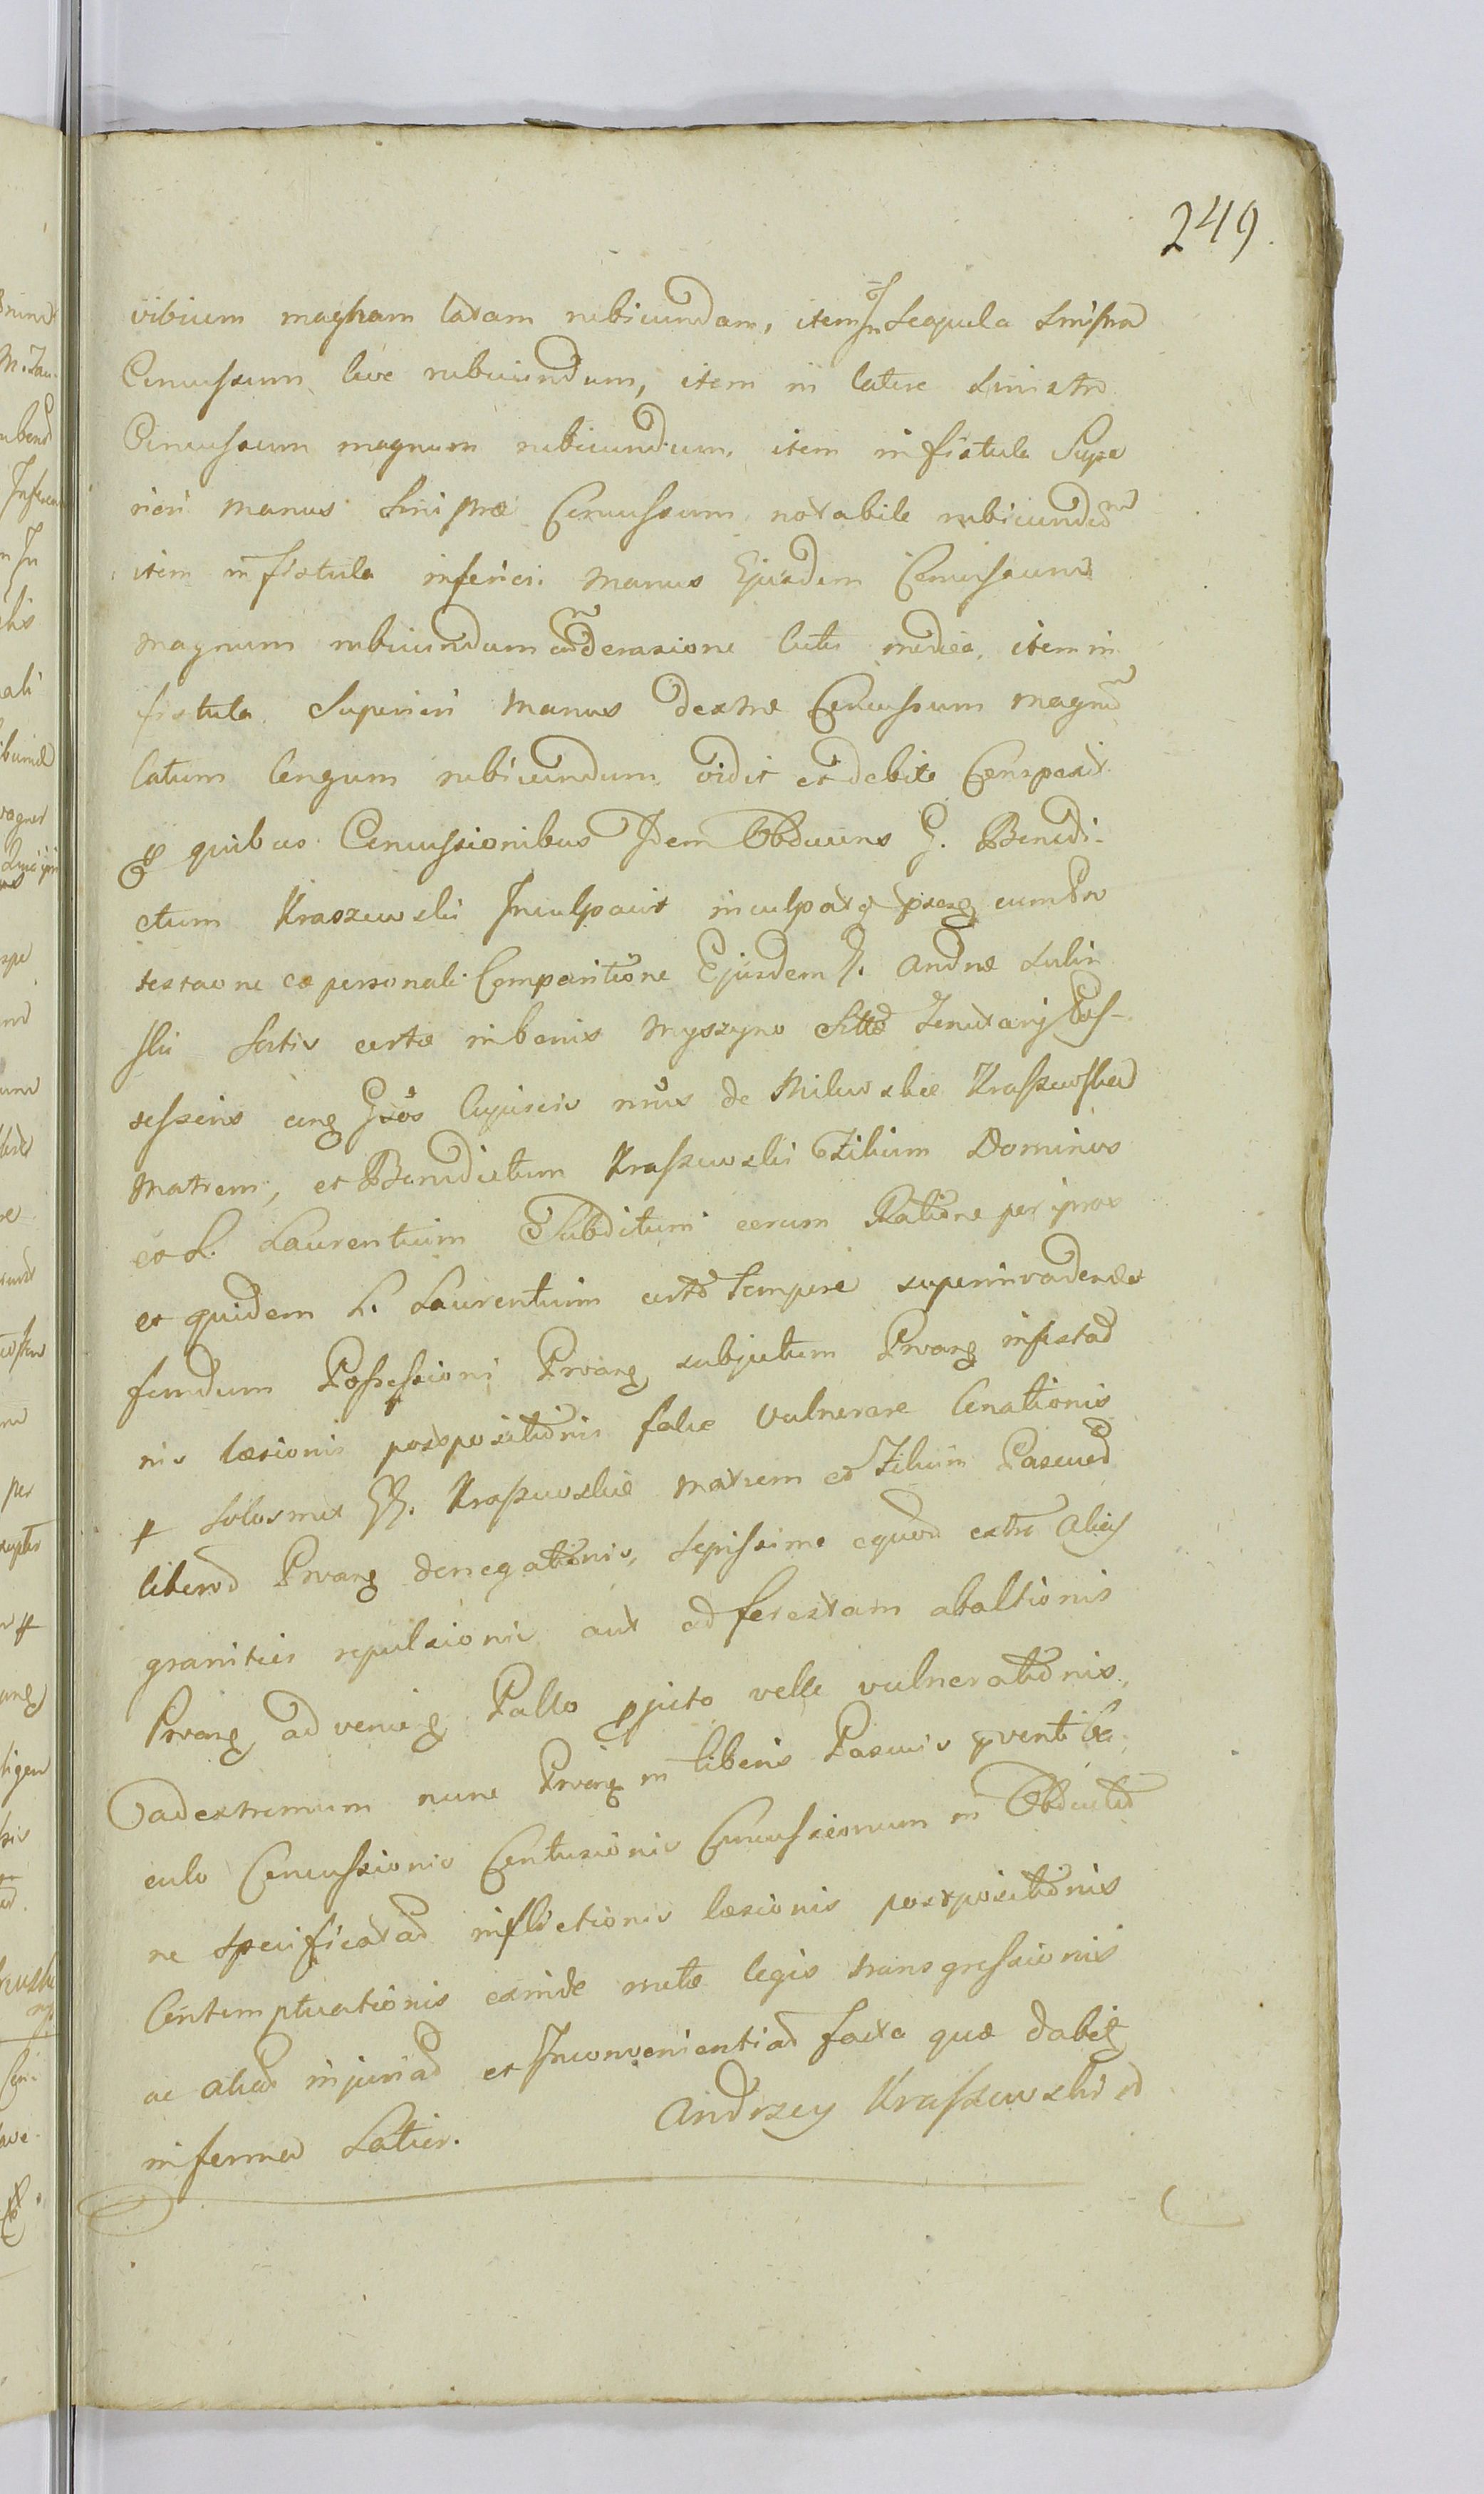 249
vibicem magnam latam rubicundam, item In Scapula Sinistra
Concussum leve rubicundum, item in latere Sinistro
Concussum magnum rubicundum, item in fistula Supe
riori manus Sinistræ Concussum notabile rubicundum
item in fistula inferiori manus Ejusdem Concussum
magnum rubicundum cum derasione cutis media, item in
fistula Superiori manus dextræ Concussum magnum
latum longum rubicundum vidit et debite Conspexit.
quibus Concussionibus Idem Obducens G. Benedi-
ctum Kraszewski Inculpavit inculpatq pntq cum Pro
testaone ex personali Comparitione Ejusdem G. Andreæ Sulin
ski Sortis certæ in bonis Myszyno Sittæ Tenutarij Pos-
sessoris ctra Gsos Cujuscis nnis de Milewskie Kraszewska
Matrem, et Benedictum Kraszewski Filium Dominos
et L. Laurentium Subditum eorum Ratione per ipsos
et quidem L. Laurentium certo tempore superinvadendo
fundum Possessioni Prvang subjectum Prvang infestao
nis læsionis postpositionis falce vulnerare Conationis
solosmet GG. Kraszewskie matrem et Filium Pascuo
libero Prvang denegationis, Sepissime equor extra alias
granities repulsionis aut ad forestam abactionis
Prvang advenieq Pallo projecto velle vulnerationis,
ad extremum nunc Prvang in liberis Pascuis
culo Concussionis Contusionis Concussionum in Obductio
ne Specificatar inflictionis læsionis postpositionis
Contemptuationis exinde metæ legis transgressionis
ac aliar injuriar et Inconvenientiar facta quæ dabitq
in forma Latior. Andrzey Kraszewski